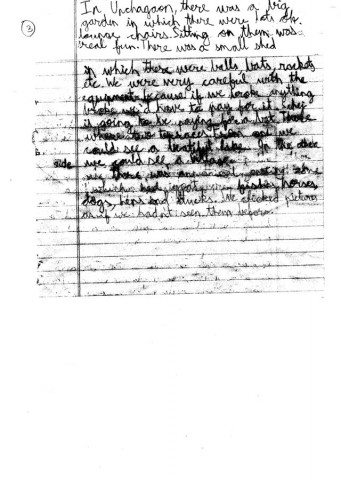 3
In Unchagaon, there was a big
garden in which there were lots of
lounge chairs. Sitting on them was
real fun. There was a small shed
in which there were balls, bats, rackets
etc. We were very careful with the
equipment because if we broke anything
we'd have to pay for it
is going to be paying for a bat. There
where two terraces. From one we
could see a beatiful lake. In the other
side we could see a village.
there was
which had fishes, horses,
dogs, hens and ducks. We clicked pictures
as if we hadn't seen them before.